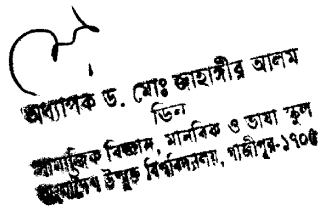 অধ্যাপক ড. মোঃ জাহাঙ্গীর আলম
ডিন
সামাজিক বিজ্ঞান, মানবিক ও ভাষা স্কুল
বাংলাদেশ উন্মুক্ত বিশ্ববিদ্যালয়, গাজীপুর-১৭০৫